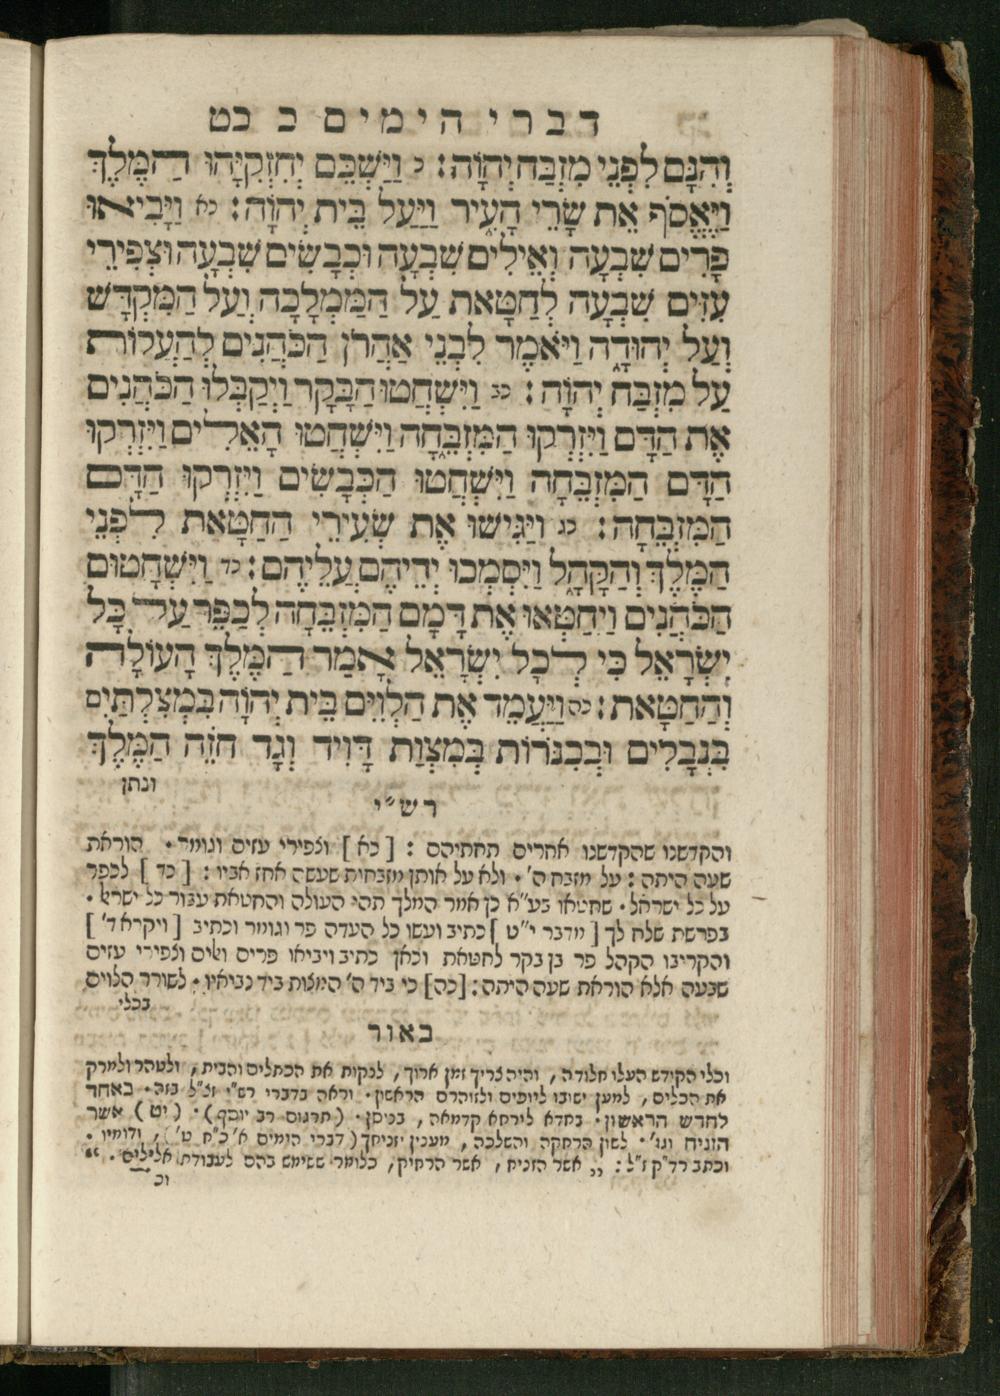 דברי הימים כ כט
וְהִנָּם לִפְנֵי מִזְבַּח יְהוָֹה׃ כ וַיַּשְׁכֵּם יְחִזְקִיָּהוּ הַמֶּלֶךְ
וַיֶּאֱסֹף אֵת שָׂרֵי הָעִיר וַיַּעַל בֵּית יְהוָֹה׃ כא וַיָּבִיאוּ
פָרִים שִׁבְעָה וְאֵילִים שִׁבְעָה וּכְבָשִׂים שִׁבְעָה וּצְפִירֵי
עִזִּים שִׁבְעָה לְחַטָּאת עַל הַמַּמְלָכָה וְעַל הַמִּקְדָּשׁ
וְעַל יְהוּדָה וַיֹּאמֶר לִבְנֵי אַהֲרֹן הַכֹּהֲנִים לְהַעֲלוֹת
עַל מִזְבַּח יְהוָֹה׃ כב וַיִּשְׁחֲטוּ הַבָּקָר וַיְקַבְּלוּ הַכֹּהֲנִים
אֶת הַדָּם וַיִּזְרְקוּ הַמִּזְבֵּחָה וַיִּשְׁחֲטוּ הָאֵלִים וַיִּזְרְקוּ
הַדָּם הַמִּזְבֵּחָה וַיִּשְׁחֲטוּ הַכְּבָשִׂים וַיִּזְרְקוּ הַדָּם
הַמִּזְבֵּחָה׃ כג וַיַּגִּישׁוּ אֶת שְׂעִירֵי הַחַטָּאת לִפְנֵי
הַמֶּלֶךְ וְהַקָּהָל וַיִּסְמְכוּ יְדֵיהֶם עֲלֵיהֶם׃ כד וַיִּשְׁחָטוּם
הַכֹּהֲנִים וַיְחַטְּאוּ אֶת דָּמָם הַמִּזְבֵּחָה לְכַפֵּר עַל כָּל
יִשְׂרָאֵל כִּי לְכָל יִשְׂרָאֵל אָמַר הַמֶּלֶךְ הָעוֹלָה
וְהַחַטָּאת׃ כה וַיַּעֲמֵד אֶת הַלְוִיִּם בֵּית יְהוָֹה בִּמְצִלְתַּיִם
בִּנְבָלִים וּבְכִנֹּרוֹת בְּמִצְוַת דָּוִיד וְגָד חֹזֵה הַמֶּלֶךְ
ונתן
רש״י
והקדשנו שהקדשנו אחרים תחתיהם : [ כא ] וצפירי עזים וגומר • הוראת
שעה היתה : על מזבח ה' • ולא על אותן מזבחות שעשה אחז אביו : [ כד ] לכפר
על כל ישראל • שחטאו בע״א כן אמר המלך תהי העולה והחטאת עבור כל ישרא' •
בפרשת שלח לך [ מדבר י״ט ] כתיב ועשו כל העדה פר וגומר וכתיב [ ויקרא ד' ]
והקריבו הקהל פר בן בקר לחטאת וכאן כתיב ויביאו פרים ואלים וצפירי עזים
שבעה אלא הוראת שעה היתה : [כה] כי ביד ה' המצות ביד נביאיו • לשורר הלוים
בכלי
באור
וכלי הקודש העלו חלודה , והיה צריך זמן ארוך , לנקות את הכתלים והבית , ולטהר ולמרק
את הכלים , למען ישובו ליופים ולזוהרם הראשון • וראה בדברי רש״י ז״ל בזה • באחד
לחדש הראשון • בחדא לירחא קדמאה , בניסן • (תרגום רב יוסף) • (יט) אשר
הזניח וגו' • לשון הרחקה והשלכה , מענין יזניחך (דברי הימים א' כ״ח ט') , ודומיו •
וכתב רד״ק ז״ל : ,, אשר הזניח , אשר הרחיק , כלומר ששימש בהם לעבודת אלילים • “
וכ